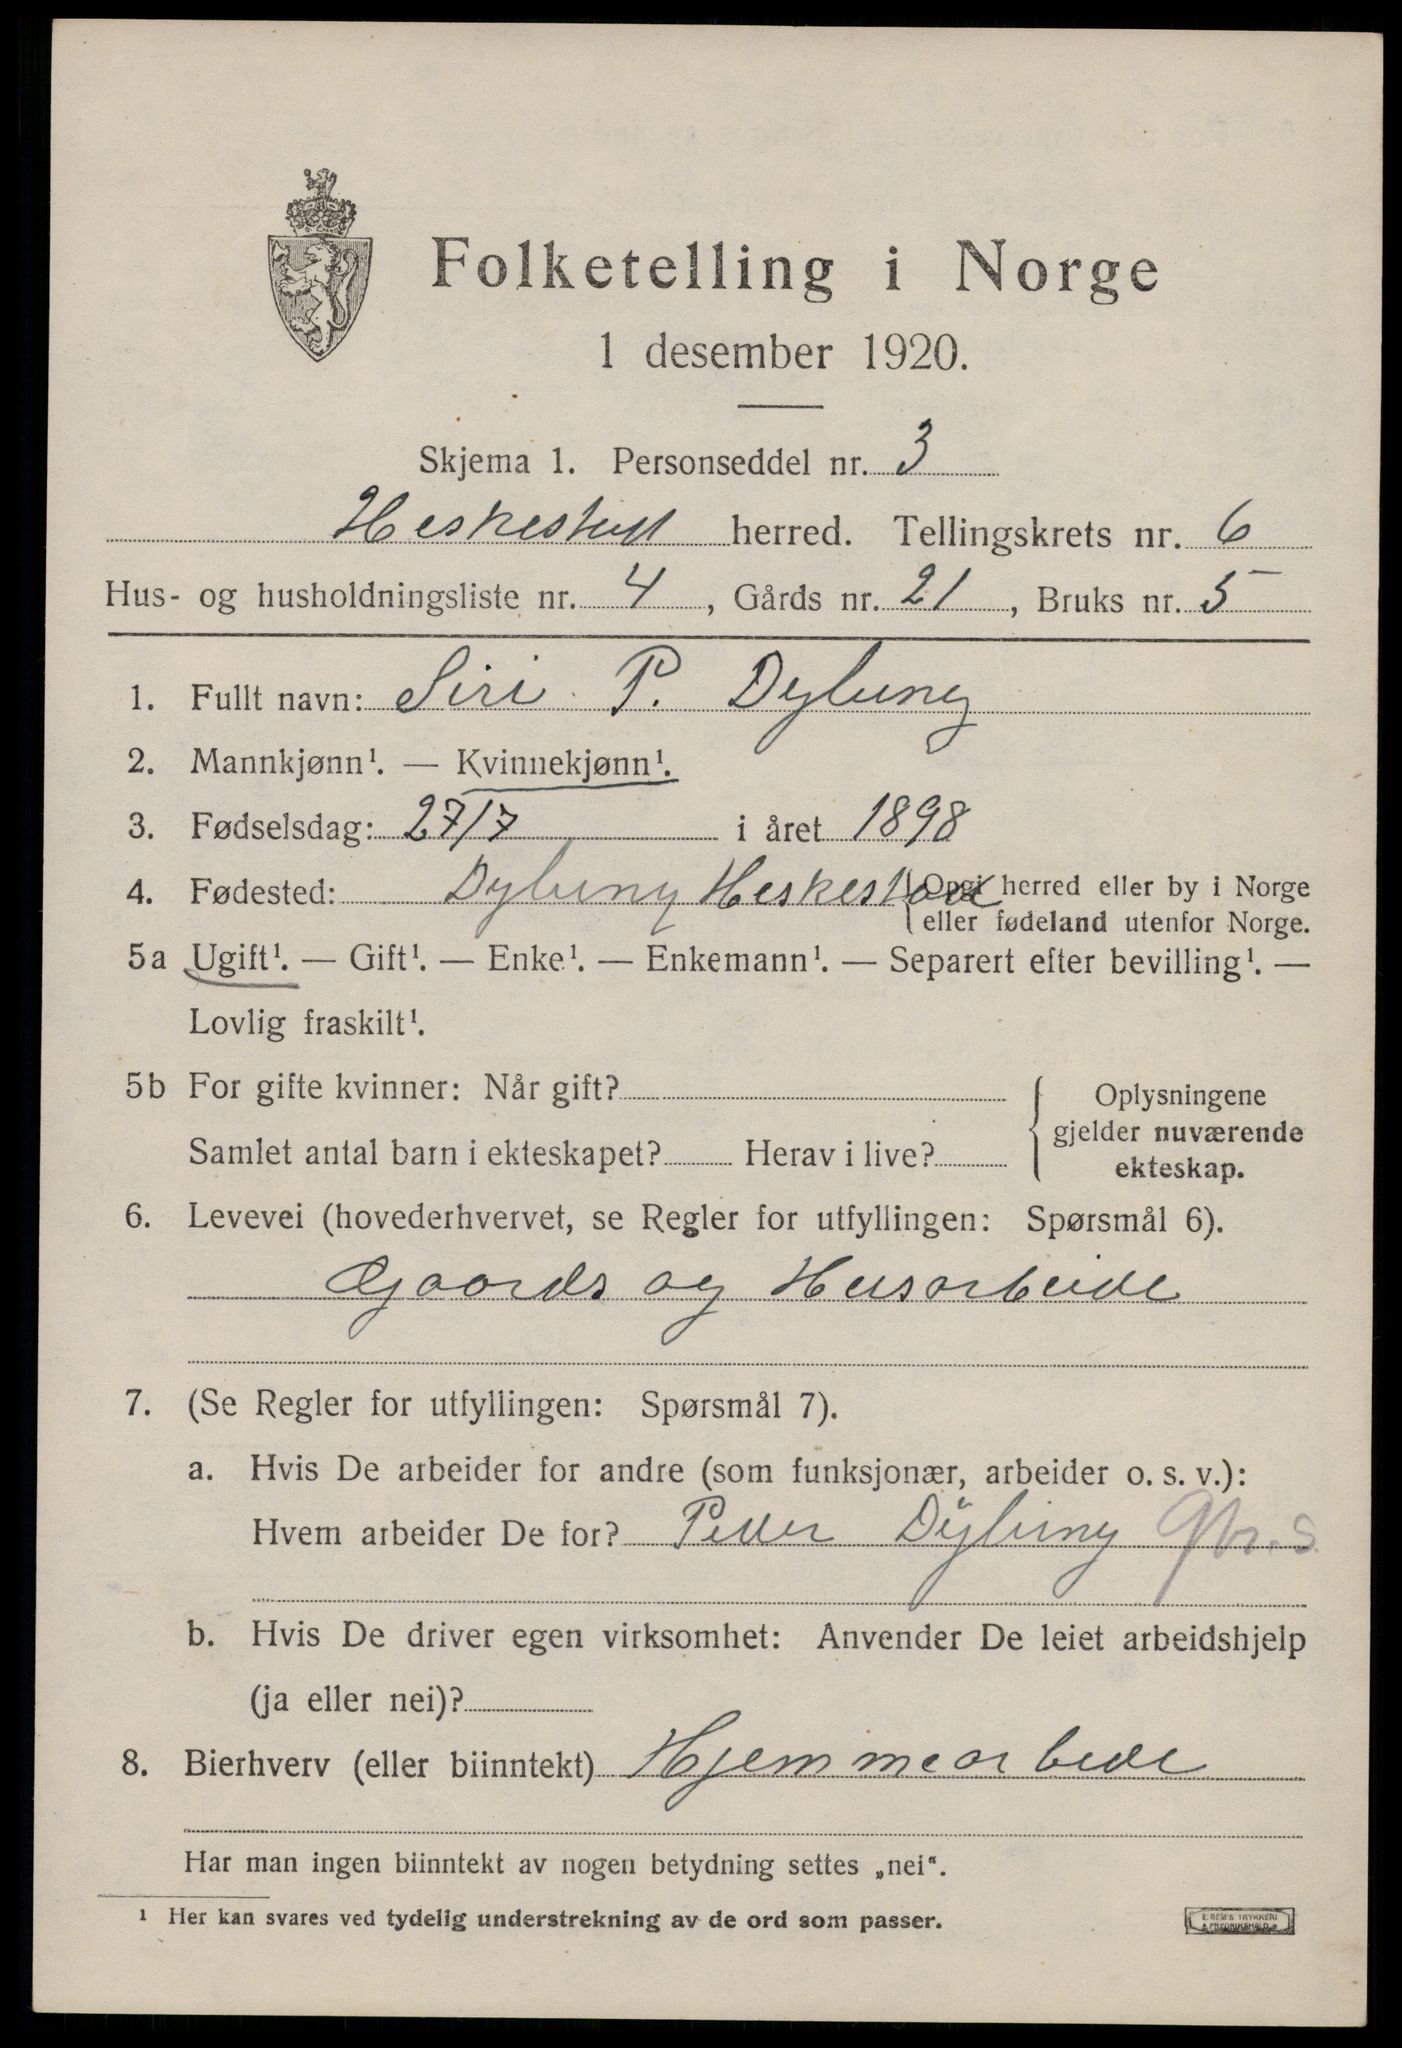 Folketelling i Norge
1 desember 1920.
Skjema 1. Personseddel nr. 3
Heskestad herred. Tellingskrets nr. 6
Hus- og husholdningsliste nr. 4, Gårds nr. 21, Bruks nr. 5
1. Fullt navn: Siri P. Dybing
2. Mannkjønn¹. — Kvinnekjønn¹.
3. Fødselsdag: 27/7 i året 1898
4. Fødested: Dybing Heskestad (Opgi herred eller by i Norge
eller fødeland utenfor Norge.
5a Ugift¹. — Gift¹. — Enke¹. — Enkemann¹. — Separert efter bevilling¹. —
Lovlig fraskilt¹.
5b For gifte kvinner: Når gift?
Samlet antal barn i ekteskapet? Herav i live?
Oplysningene
gjelder nuværende
ekteskap.
6. Levevei (hovederhvervet, se Regler for utfyllingen: Spørsmål 6).
Gaards og Husarbeide
7. (Se Regler for utfyllingen: Spørsmål 7).
a. Hvis De arbeider for andre (som funksjonær, arbeider o. s. v.):
Hvem arbeider De for? Peder Dybing
b. Hvis De driver egen virksomhet: Anvender De leiet arbeidshjelp
(ja eller nei)?
8. Bierhverv (eller biinntekt) Hjemmearbede
Har man ingen biinntekt av nogen betydning settes „nei“.
¹ Her kan svares ved tydelig understrekning av de ord som passer.